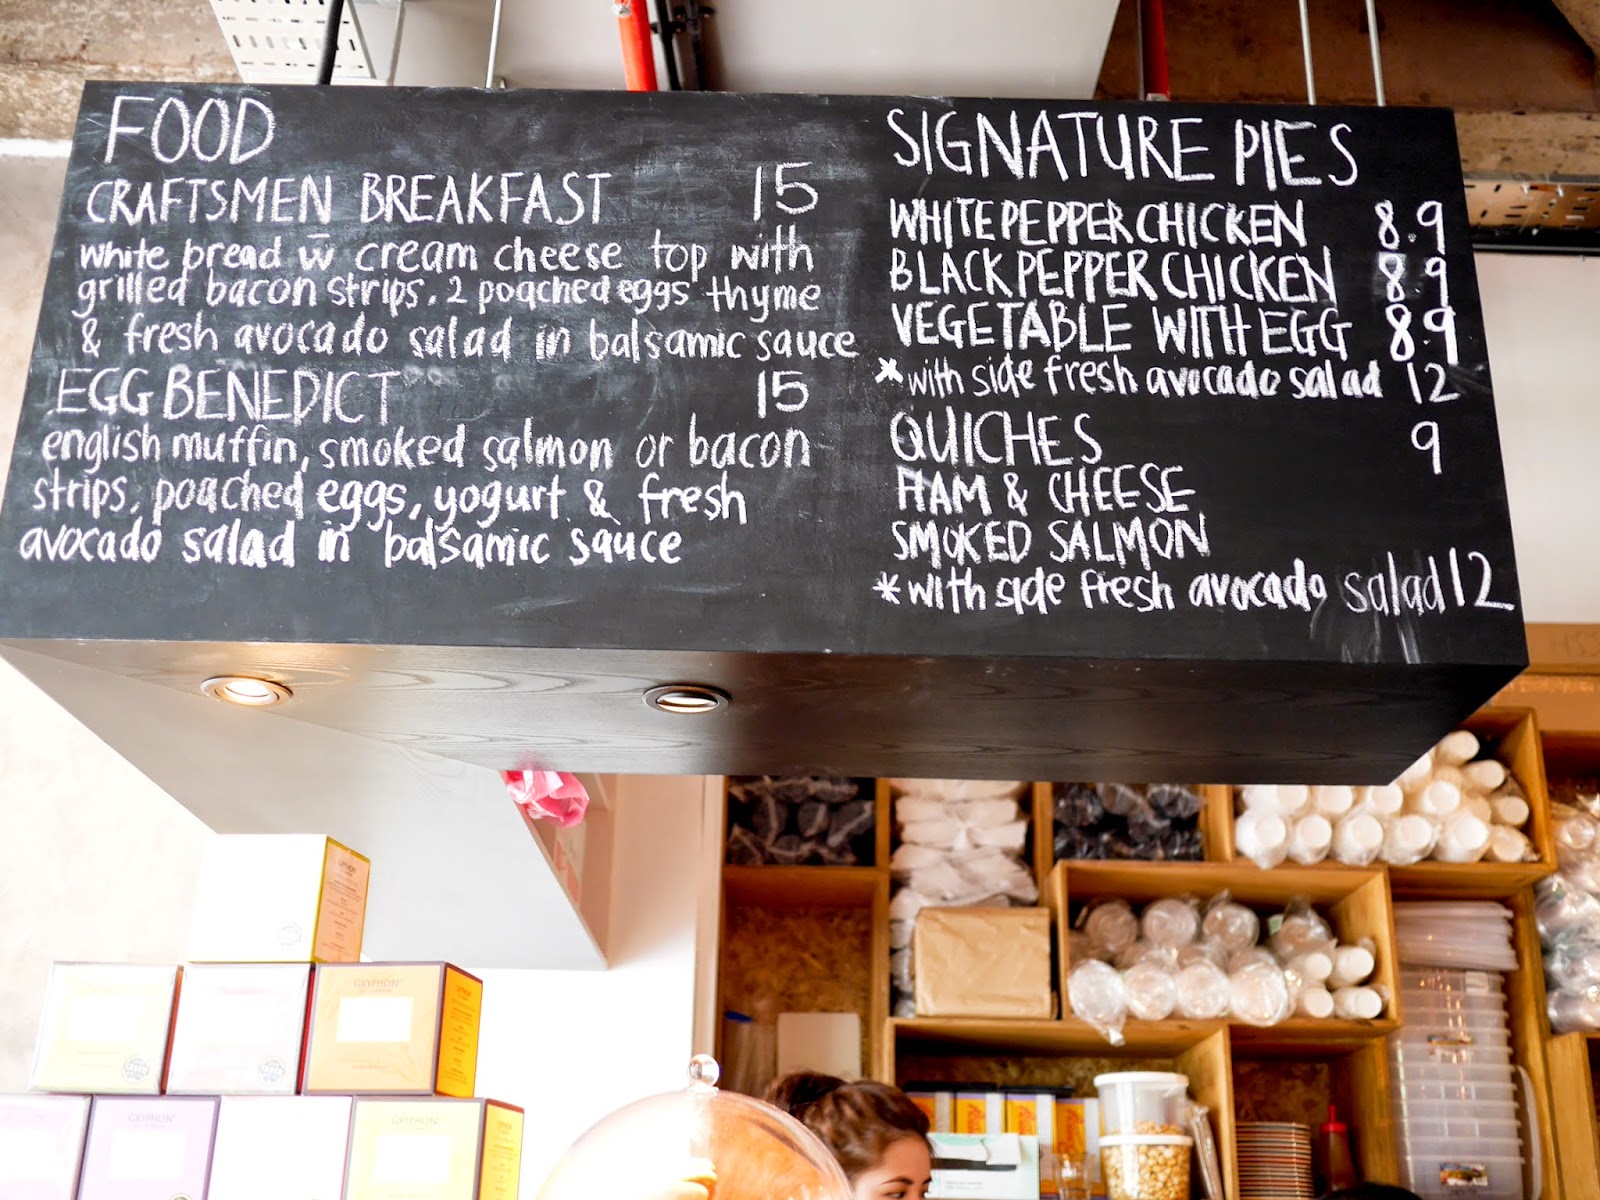 FOOD
CRAFTSMEN BREAKFAST 15
white bread w̅ cream cheese top with
grilled bacon strips, 2 poached eggs thyme
& fresh avocado salad in balsamic sauce
EGG BENEDICT 15
english muffin, smoked salmon or bacon
strips, poached eggs, yogurt & fresh
avocado salad in balsamic sauce
SIGNATURE PIES
WHITE PEPPER CHICKEN 8.9
BLACK PEPPER CHICKEN 8.9
VEGETABLE WITH EGG 8.9
*with side fresh avocado salad 12
QUICHES 9
HAM & CHEESE
SMOKED SALMON
*with side fresh avocado salad 12
GRYPHON
GRYPHON
GRYPHON
GRYPHON